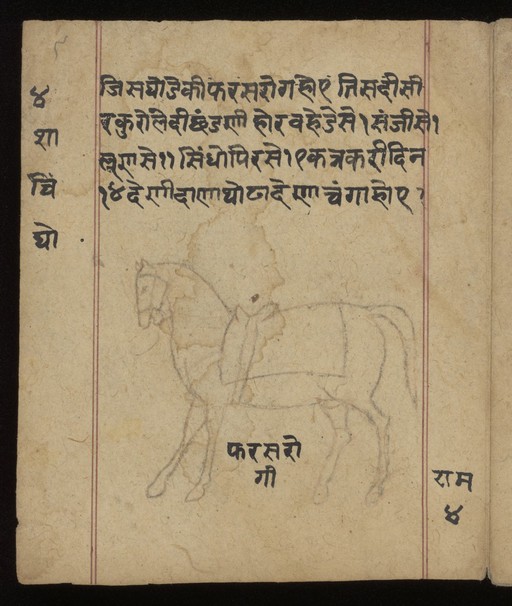 ४
शा
चिं
घो
जिसघोडेकीफरसरोगहोए तिसदीसी
रकुरोलेदीछडणी होरवहेडेसे। संजीसे।
लूणसे।१ सिंधोपिरसे।१ एकत्रकरीदिन
१४ देणीदाणाघोटादेणा चंगाहोए १
फरसरो
गी
राम
४